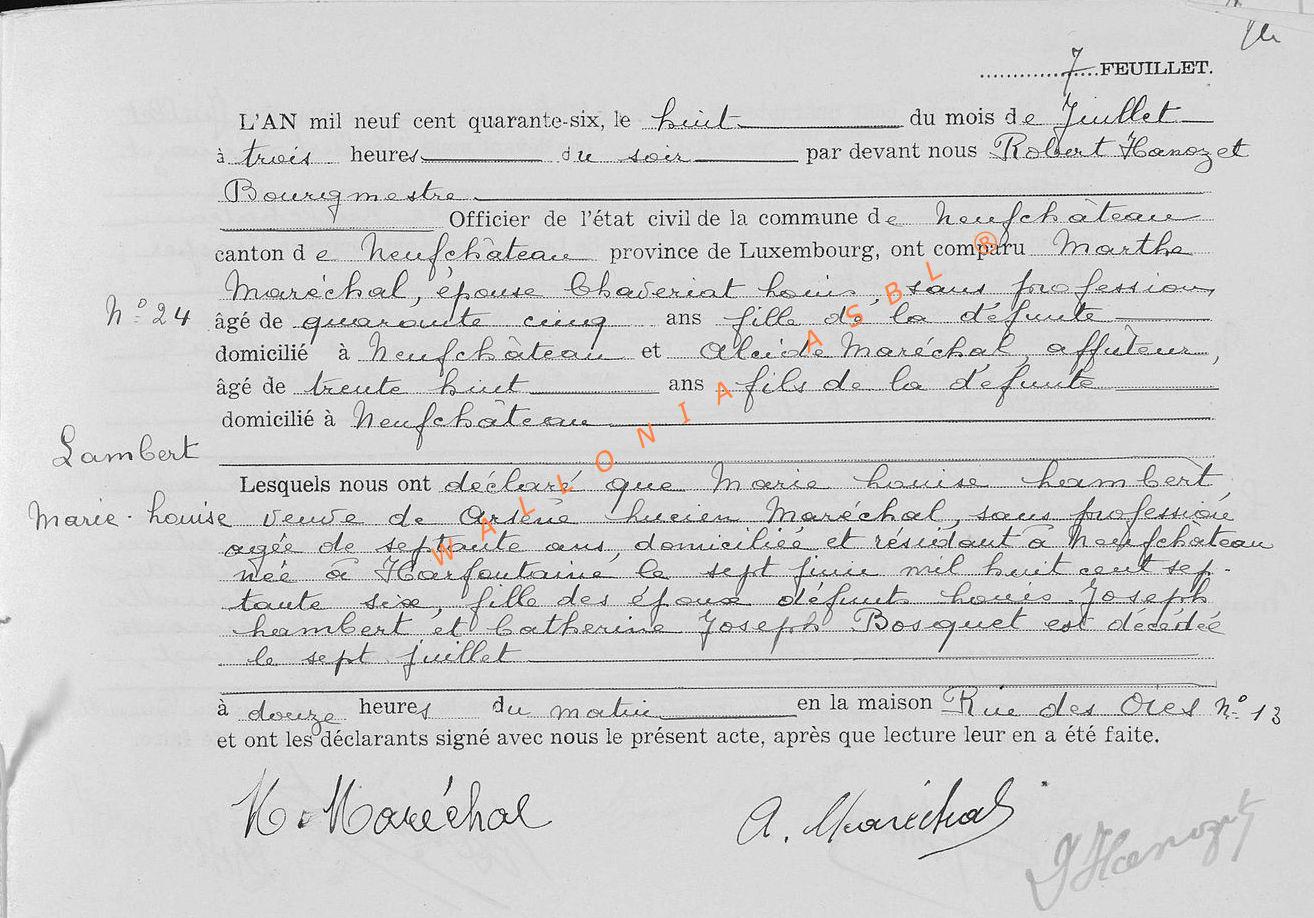 7 FEUILLET.
L'AN mil neuf cent quarante-six, le huit du mois de Juillet
à trois heures du soir par devant nous Robert Hanozet
Bourgmestre
Officier de l'état civil de la commune de Neufchâteau
canton de Neufchâteau province de Luxembourg, ont comparu Marthe
Maréchal, épouse Chaveriat Louis, sans profession,
N° 24 âgé de quarante cinq ans fille de la défunte
domicilié à Neufchâteau et Alcide Maréchal, affuteur,
âgé de trente huit ans fils de la défunte
domicilié à Neufchâteau
Lambert
Lesquels nous ont déclaré que Marie Louise Lambert
Marie-Louise veuve de Arsène Lucien Maréchal, sans profession
agée de septante ans, domiciliée et résidant à Neufchâteau
née à Harfontaine le sept juin mil huit cent sep-
tante six, fille des époux défunts Louis Joseph
Lambert et Catherine Joseph Bosquet est décédée
le sept juillet
à douze heures du matin en la maison Rue des Ores N° 13
et ont les déclarants signé avec nous le présent acte, après que lecture leur en a été faite.
M. Maréchal A. Maréchal
Hanozet
WALLONIA ASBL ®